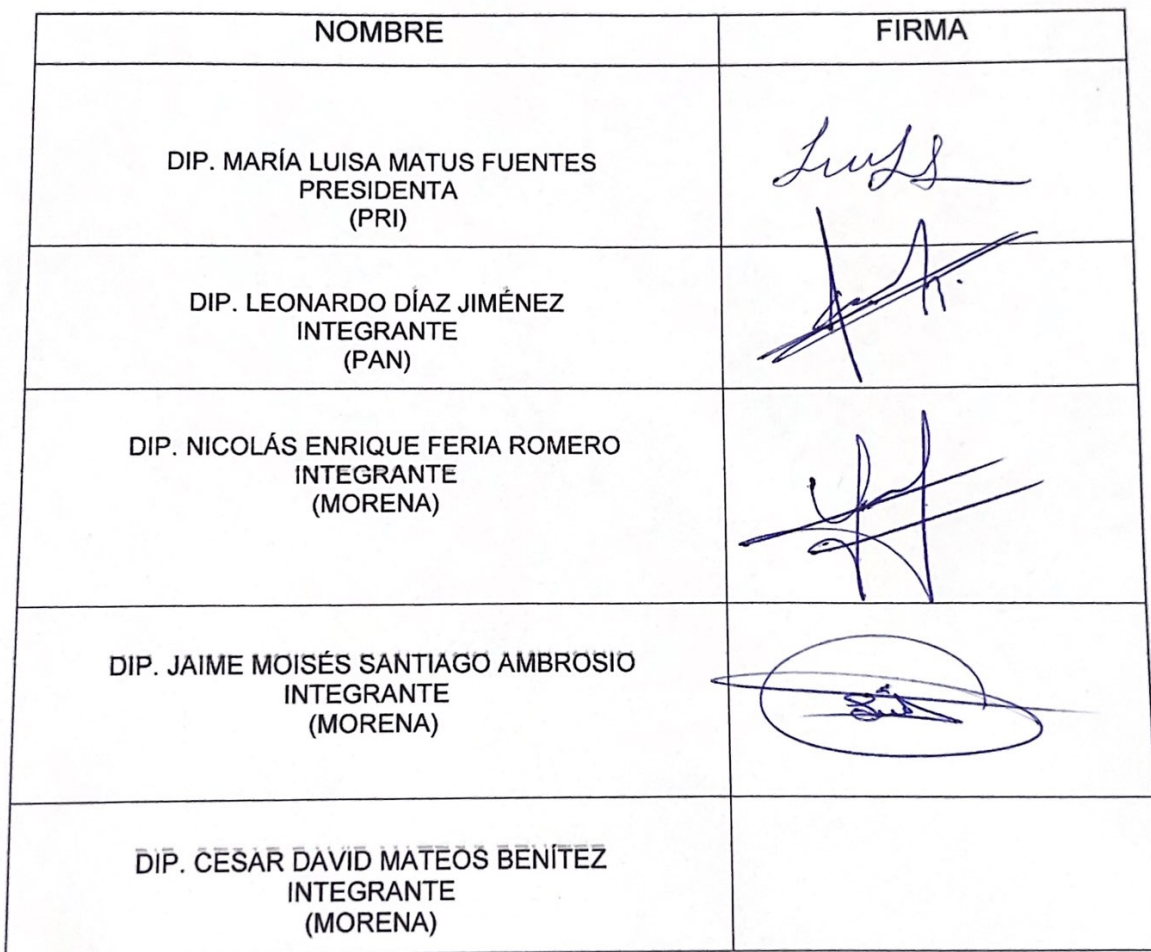 NOMBRE
FIRMA
DIP. MARÍA LUISA MATUS FUENTES
PRESIDENTA
(PRI)
DIP. LEONARDO DÍAZ JIMÉNEZ
INTEGRANTE
(PAN)
DIP. NICOLÁS ENRIQUE FERIA ROMERO
INTEGRANTE
(MORENA)
DIP. JAIME MOISÉS SANTIAGO AMBROSIO
INTEGRANTE
(MORENA)
DIP. CESAR DAVID MATEOS BENÍTEZ
INTEGRANTE
(MORENA)